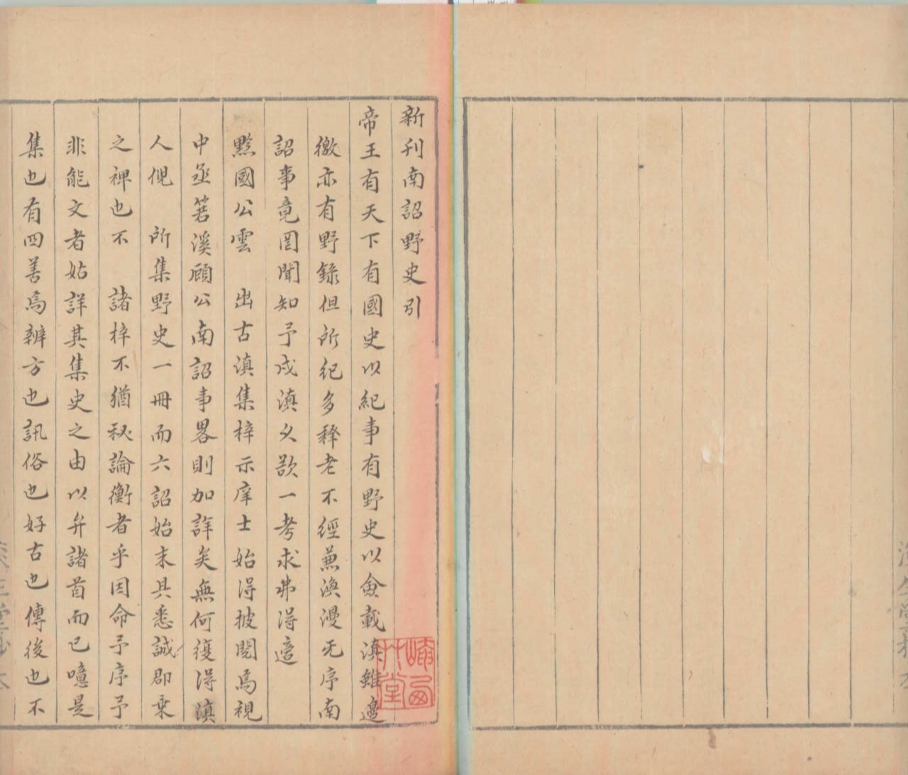 新刋南詔野史引
帝王有天下有國史以紀事有野史以僉載滇雖邊
徼亦有野錄但所紀多釋老不經蕪渙漫无序南
詔事竟罔聞知予戍滇久欲一考求弗得適
黔國公雲 出古滇集梓示庠士始得披閱焉視
中丞箬溪顧公南詔事畧則加詳矣無何復得滇
人倪 所集野史一冊而六詔始末具悉誠郡乗
之裨也不 諸梓不猶秘論衡者乎因命予序予
非能文者姑詳其集史之由以弁諸首而已噫是
集也有四善焉辨方也訊俗也好古也傳後也不